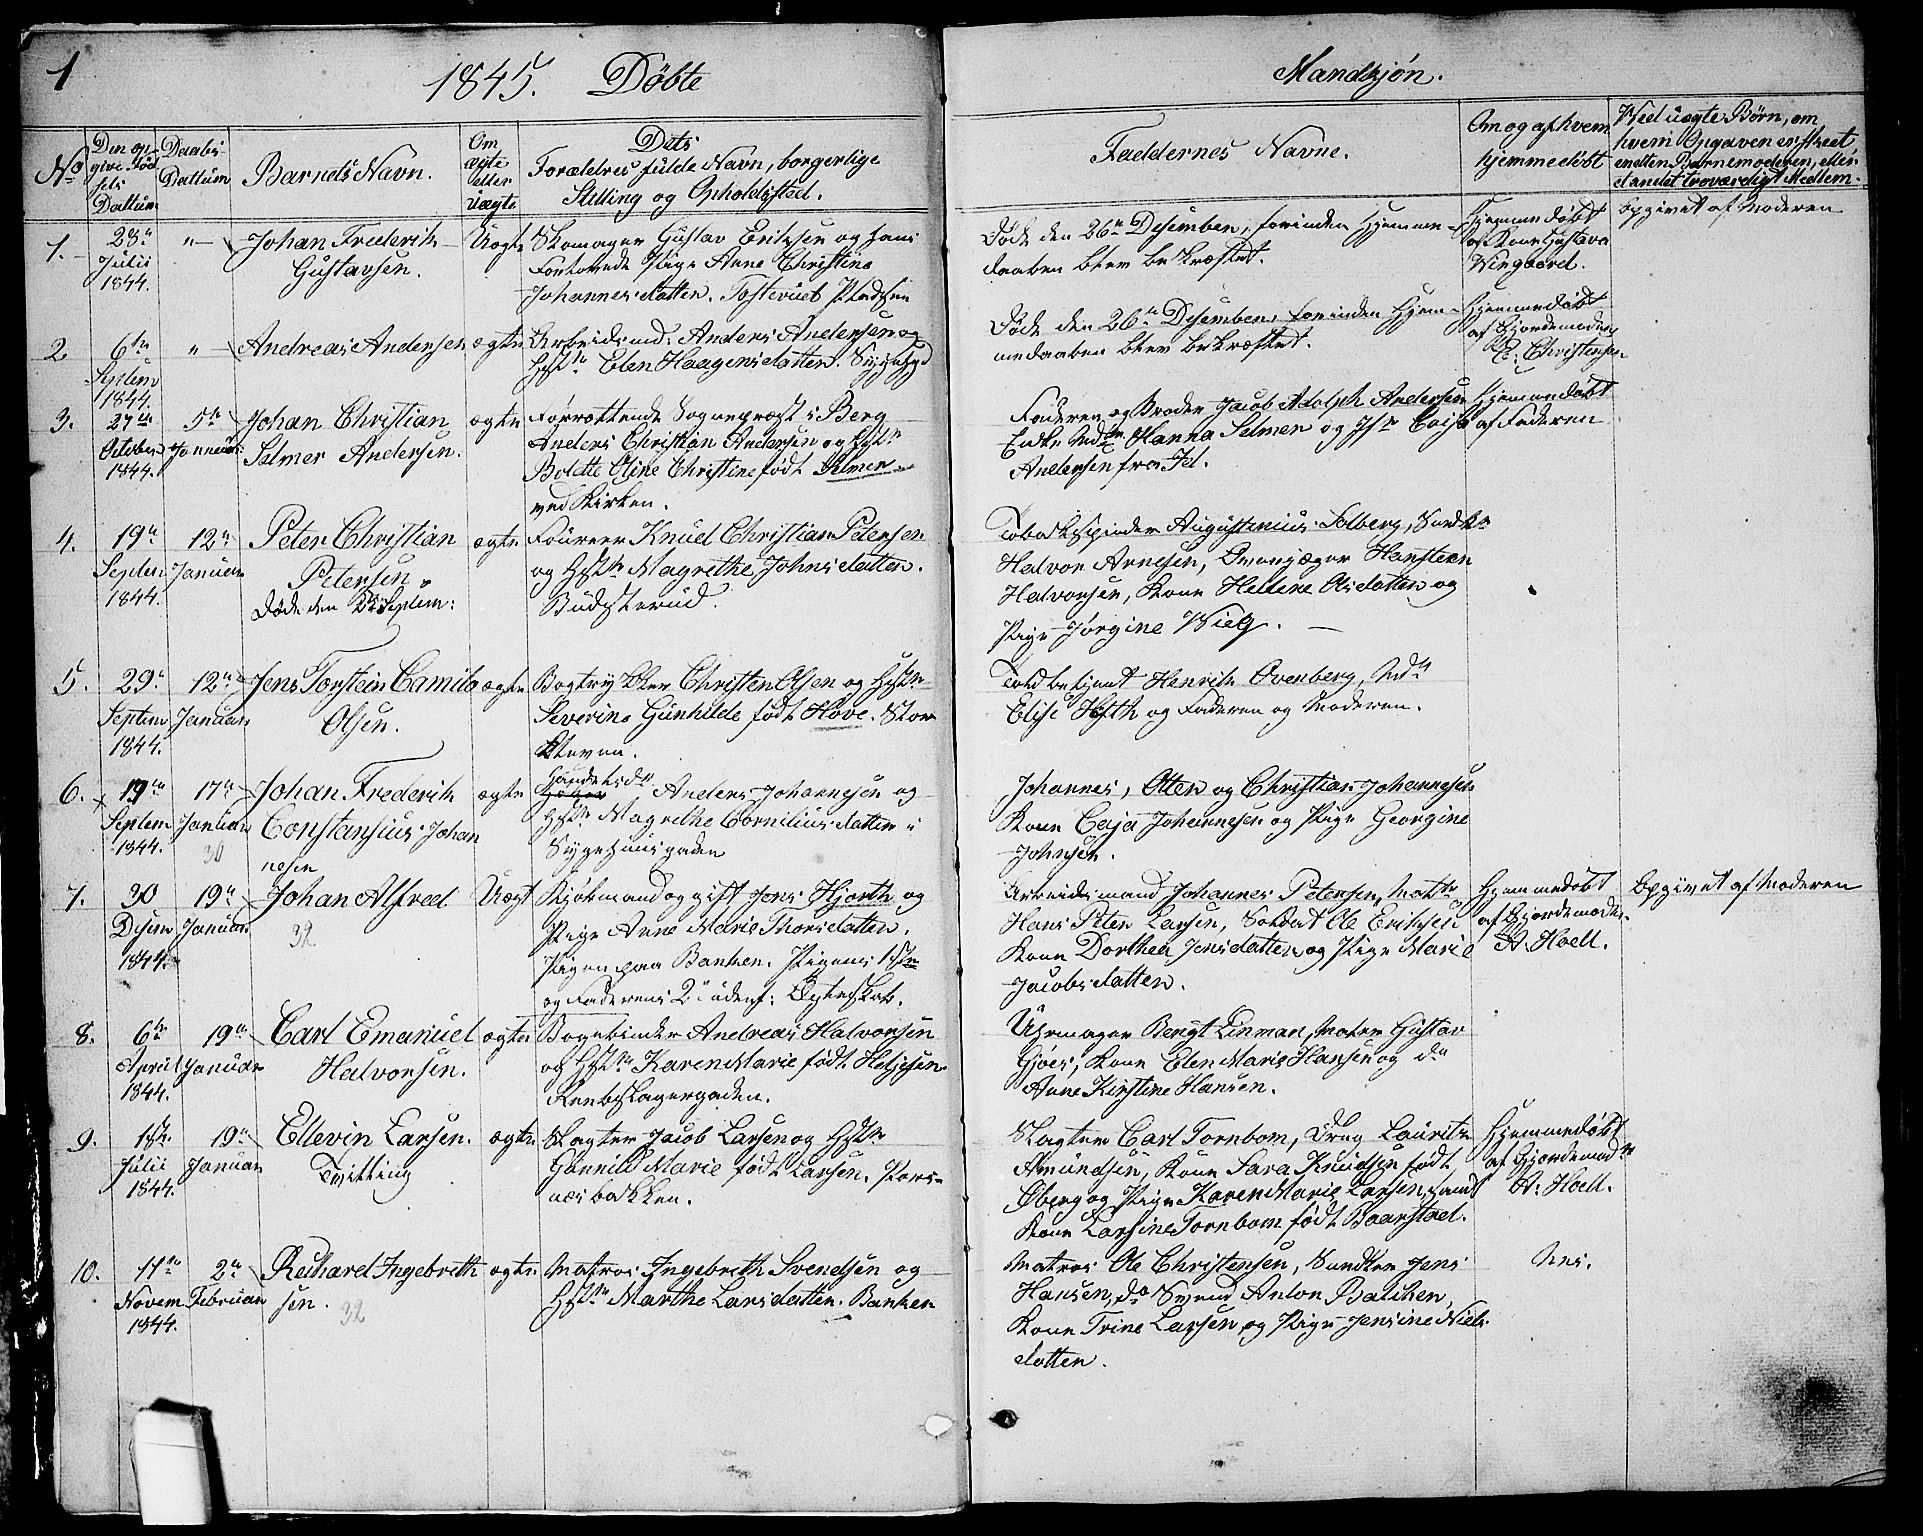 1
1845. Døbte
Mandkjøn.
No
Den op
give Fød
sels
Dattum
Daabs
Dattum
Barnets Navn.
Om
ægte
eller
Uægte
Dets
Forældres fulde Navn, borgerlige
Stilling og Opholdssted.
Faddernes Navne.
Om og af hvem
hjemmedøbt
Ved uægte Børn, om
hvem Opgaven er skeet,
enten Barnemoderen, eller
et andet troværdigt Medlem.
1.
28de
Julii
1844.
"
Johan Frederik
Gustavsen.
Uægte
Skomager Gustav Eriksen og hans
Forlovede Pige Anne Christine
Johannesdatter. Tosterud Pladsen
Døde den 26de Desember, forinden Hjemme-
daaben blev bekræftet.
Hjemmedøbt
af Kone Gustava
Wingaard.
Opgivet af Moderen
2
6te
Septem
1844.
"
Andreas Andersen
ægte
Arbeidsmd. Anders Andersen og
Hstr Elen Haagensdatter.
Døde den 26de Desember, forinden Hjem-
medaaben blev bekræftet.
Hjemmedøbt
af Gjordemoder
E. Christensen
3.
27de
October
1844.
5te
Januar
Johan Christian
Selmer Andersen.
ægte
Forrettende Sognepræst i Berg
Anders Christian Andersen og Hstr
Bolette Eline Christine født Selmer
ved Kirken.
Faderen og Broder Jacob Adolph Andersen
Enke Mdm Hanna Selmer og Jfr Caisa
Andersen fra Id.
Hjemmedøbt
af Faderen
4.
19de
Septem
1844.
12te
Januar
Peter Christian
Petersen
Døde den Septem:
ægte
Foureer Knud Christian Petersen
og Hstr Magrethe Johnsdatter.
Budsterud.
Tobakspinder Augustinius Solberg, Snedkr
Halvor Arnesen, Svenjæger Hansteen
Halvorsen, Kone Hellene Olsdatter og
Pige Jørgine Wieg.
5.
29de
Septem
1844.
12te
Januar
Jens Torstein Camilo
Olsen.
ægte
Bogtrykker Christen Olsen og Hstr
Severine Gunhilde født Hove. Stor
kleven.
Toldbetjent Henrik Ovenberg, Mdm
Elise Hfth og Faderen og Moderen.
6.
19de
Septem
1844.
17de
Januar
30
Johan Frederik
Constansius Johan
nesen
ægte
Handelsd. Anders Johannesen og
Hstr Magrethe Corniliusdatter i
Sygehuusgaden
Johannes, Otter og Christian Johannesen
Kone Caja Johannesen og Pige Georgine
Johnsen.
7.
30
Desem
1844.
19de
Januar
Johan Alfred
32
Uægt
Kjøkmand og gift Jens Hjorth og
Pige Anne Marie Thorsdatter.
Pigen paa Banken. Pigens 1ste
og Faderens 2det udenf: Ægteskab.
Arbeidsmand Johannes Petersen, Matr
Hans Peter Larsen, Soldat Ole Eriksen
Kone Dorthea Jensdatter og Pige Marie
Jacobsdatter.
Hjemmedøbt
af Gjordemoder
A. Hoell.
Opgivet af Moderen
8.
6te
April
1844.
19de
Januar
Carl Emanuel
Halvorsen.
ægte
Bogbinder Andreas Halvorsen
og Hstr Karen Marie født Heljesen.
Reebslagergaden.
Uhrmager Bengt Linman, Maler Gustav
Gjøes, Kone Elen Marie Hansen og do
Anne Kirstine Hansen.
9.
1ste
Julii
1844.
19de
Januar
Ellevin Larsen.
Tvilling
ægte
Slagter Jacob Larsen og Hstr
Gunnild Marie født Larsen. Pors-
næsbakken.
Slagter Carl Tornbom, Dreg Lauritz
Amundsen, Kone Sara Knudsen født
Øberg og Pige Karen Marie Larsen, samt
Kone Larsine Tornbom født Baarstad.
Hjemmedøbt
af Gjordemodr
A. Hoell.
10.
11te
Novem
1844.
2de
Februar
Reihard Ingebreth
sen.
32
ægte
Matros Ingebreth Svendsen og
Hstr Marthe Larsdatter. Banken
Matros Ole Christensen, Snedker Jens
Hansen, do Svend Anton Balchen,
Kone Trine Larsen og Pige Jensine Niels
datter.
Nei.